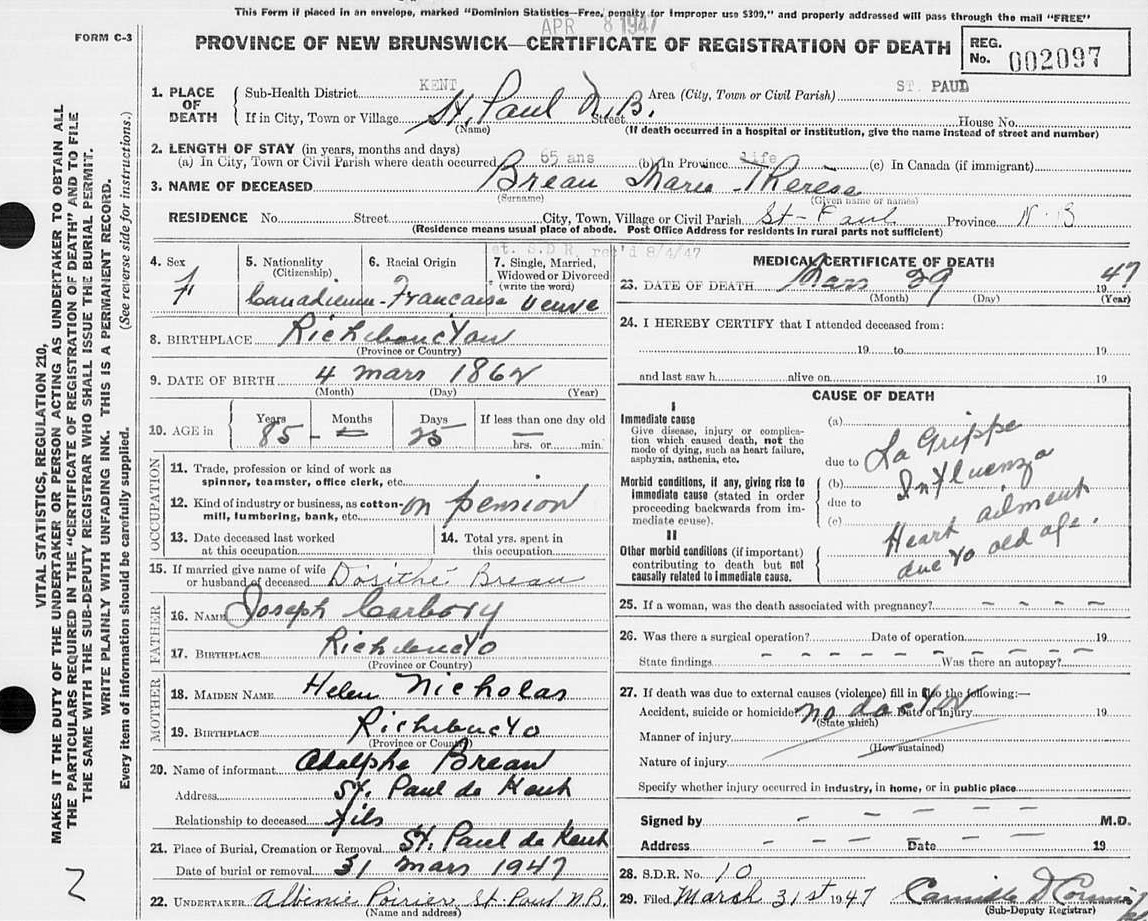 This Form if placed in an envelope, marked "Dominion Statistics—Free, penalty for improper use $300," and properly addressed will pass through the mail "FREE"
APR 8 1947
FORM C-3
PROVINCE OF NEW BRUNSWICK—CERTIFICATE OF REGISTRATION OF DEATH
REG. No. 002097
1. PLACE OF DEATH
Sub-Health District KENT Area (City, Town or Civil Parish) ST. PAUL
If in City, Town or Village St. Paul N.B. Street House No.
(Name) (If death occurred in a hospital or institution, give the name instead of street and number)
2. LENGTH OF STAY (in years, months and days)
(a) In City, Town or Civil Parish where death occurred 65 ans (b) In Province life (c) In Canada (if immigrant)
3. NAME OF DECEASED Breau Marie Therese
(Surname) (Given name or names)
RESIDENCE No. Street City, Town, Village or Civil Parish St-Paul Province N-B
(Residence means usual place of abode. Post Office Address for residents in rural parts not sufficient)
S.D.R. rec'd 8/4/47
4. Sex
f
5. Nationality
(Citizenship)
Canadienne
6. Racial Origin
Francaise
7. Single, Married, Widowed or Divorced
(write the word)
veuve
8. BIRTHPLACE Richibouctou
(Province or Country)
9. DATE OF BIRTH 4 mars 1862
(Month) (Day) (Year)
10. AGE in
Years Months Days If less than one day old
85 - — 25 —
hrs. or min.
OCCUPATION
11. Trade, profession or kind of work as
spinner, teamster, office clerk, etc.
12. Kind of industry or business, as cotton-
mill, lumbering, bank, etc. on pension
13. Date deceased last worked
at this occupation
14. Total yrs. spent in
this occupation
15. If married give name of wife
or husband of deceased Dosithé Breau
FATHER
16. NAME Joseph
17. BIRTHPLACE Richibucto
(Province or Country)
MOTHER
18. MAIDEN NAME Helen Nicholas
19. BIRTHPLACE Richibucto
(Province or Country)
20. Name of informant Adolphe Breau
Address St. Paul de Kent
Relationship to deceased fils
21. Place of Burial, Cremation or Removal St. Paul de Kent
Date of burial or removal 31 mars 1947
22. UNDERTAKER Albinie Poirier St. Paul N.B.
(Name and address)
MEDICAL CERTIFICATE OF DEATH
23. DATE OF DEATH Mars 29 1947
(Month) (Day) (Year)
24. I HEREBY CERTIFY that I attended deceased from:
19 to 19
and last saw h alive on 19
CAUSE OF DEATH
I
Immediate cause
Give disease, injury or complica-
tion which caused death, not the
mode of dying, such as heart failure,
asphyxia, asthenia, etc.
(a) La Grippe
due to
Morbid conditions, if any, giving rise to
immediate cause (stated in order
proceeding backwards from im-
mediate cause).
(b) Influenza
due to
(c)
Heart ailment
II
Other morbid conditions (if important)
contributing to death but not
causally related to immediate cause.
due to old age.
25. If a woman, was the death associated with pregnancy? - - - -
26. Was there a surgical operation? Date of operation 19
State findings Was there an autopsy?
27. If death was due to external causes (violence) fill in the following:—
Accident, suicide or homicide? no doctor Date of injury 19
(State which)
Manner of injury
(How sustained)
Nature of injury
Specify whether injury occurred in industry, in home, or in public place
Signed by M.D.
Address Date 19
28. S.D.R. No. 10
29. Filed March 31st 1947 Camille
(Sub-Deputy Registrar)
VITAL STATISTICS, REGULATION 210,
MAKES IT THE DUTY OF THE UNDERTAKER OR PERSON ACTING AS UNDERTAKER TO OBTAIN ALL
THE PARTICULARS REQUIRED IN THE "CERTIFICATE OF REGISTRATION OF DEATH" AND TO FILE
THE SAME WITH THE SUB-DEPUTY REGISTRAR WHO SHALL ISSUE THE BURIAL PERMIT.
WRITE PLAINLY WITH UNFADING INK. THIS IS A PERMANENT RECORD.
Every item of information should be carefully supplied. (See reverse side for instructions.)
2